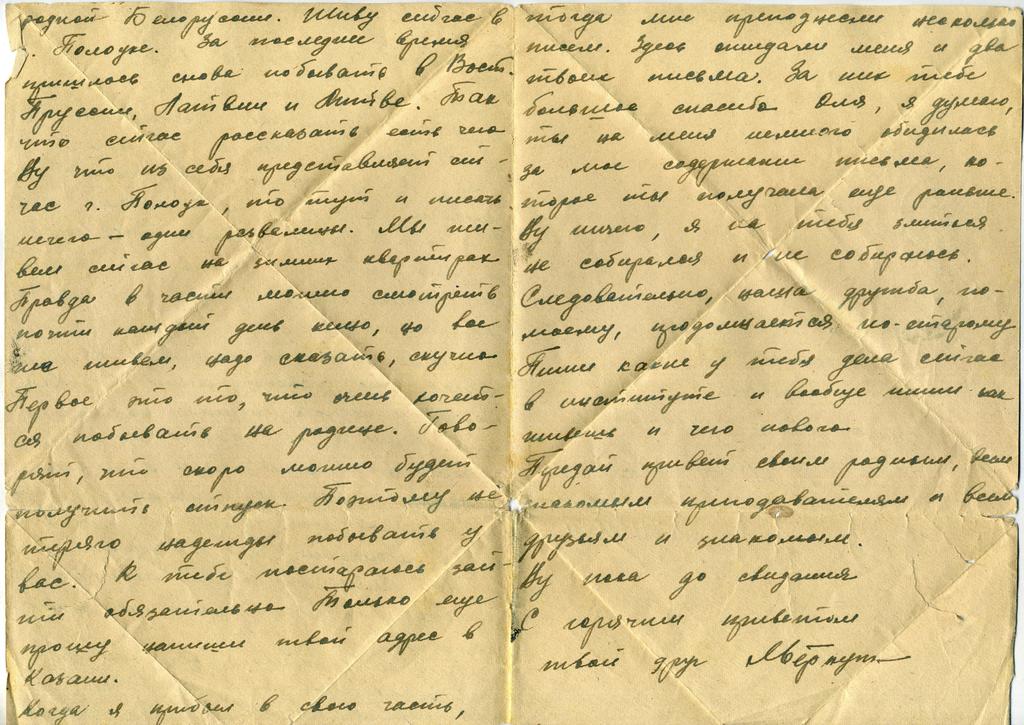 родной Белоруссии. Живу сейчас в
г. Полоцке. За последнее время
пришлось снова побывать в Вост.
Пруссии, Латвии и Литве. Так
что сейчас рассказать есть чего
Ну что из себя представляет сей-
час г. Полоцк, то тут и писать
нечего — одни развалины. Мы жи-
вем сейчас на зимних квартирах
Правда в части можно смотреть
почти каждый день кино, но все
же живем, надо сказать, скучно
Первое это то, что очень хочет-
ся побывать на родине. Гово-
рят, что скоро можно будет
получить отпуск Поэтому не
теряю надежды побывать у
вас. К тебе постараюсь зай-
ти обязательно Только еще
прошу напиши твой адрес в
Казани.
Когда я прибыл в свою часть,
тогда мне преподнесли несколько
писем. Здесь ожидали меня и два
твоих письма. За них тебе
большое спасибо Оля, я думаю,
ты на меня немного обиделась
за мое содержание письма, ко-
торое ты получила еще раньше.
Ну ничего, я на тебя злиться
не собирался и не собираюсь.
Следовательно, наша дружба, по-
моему, продолжается по-старому
Пиши какие у тебя дела сейчас
в институте и вообще пиши как
живешь и чего нового
Передай привет своим родным, всем
знакомым преподавателям и всем
друзьям и знакомым.
Ну пока до свидания
С горячим приветом
твой друг